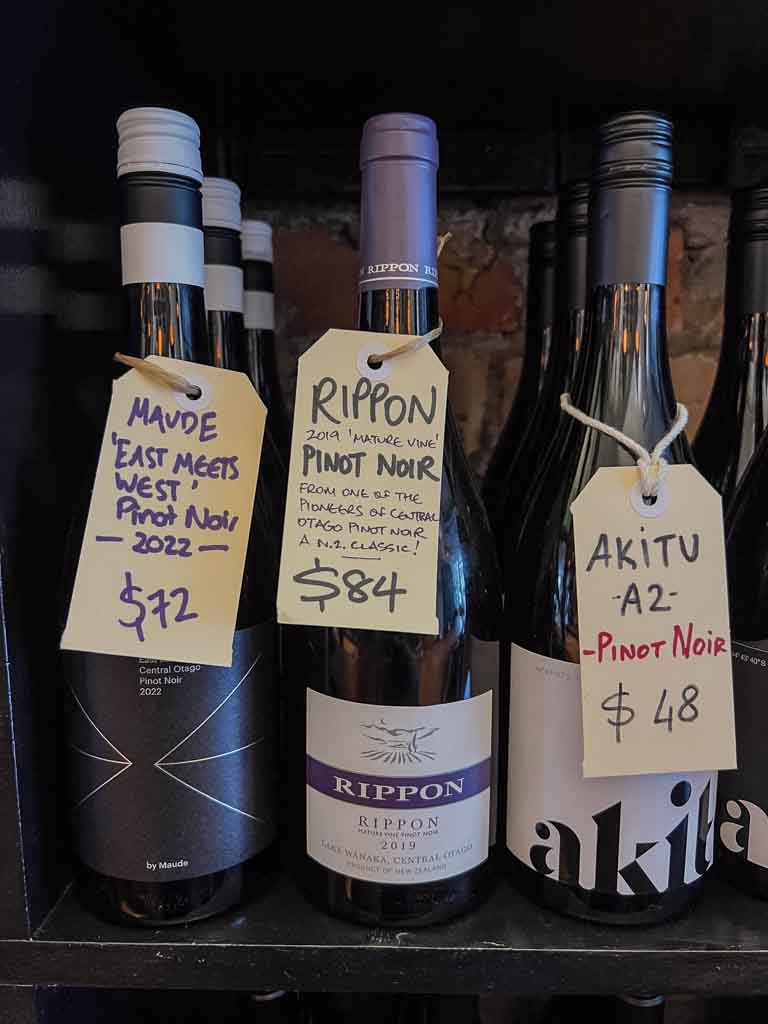 MAUDE
'EAST MEETS
WEST'
Pinot Noir
- 2022 -
$72
Central Otago
Pinot Noir
2022
by Maude
RIPPON
RIPPON
2019 'MATURE VINE'
PINOT NOIR
FROM ONE OF THE
PIONEERS OF CENTRAL
OTAGO PINOT NOIR
A N.Z. CLASSIC!
$84
RIPPON
RIPPON
MATURE VINE PINOT NOIR
2019
LAKE WANAKA, CENTRAL OTAGO
PRODUCT OF NEW ZEALAND
AKITU
-A2-
-PINOT NOIR
$48
akit
a